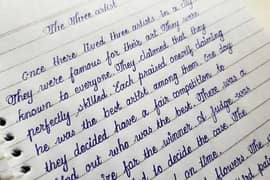 The three artist
Once there lived three artists in a city.
They were famous for their art. They were
known to everyone. They claimed that they
perfectly skilled. Each praised oneself claiming
he was the best artist among them. One day
they decided have a fair competition to
find out who was the best. There was a
for the winner. A judge was
to decide the case. The
on time.
flowers. The